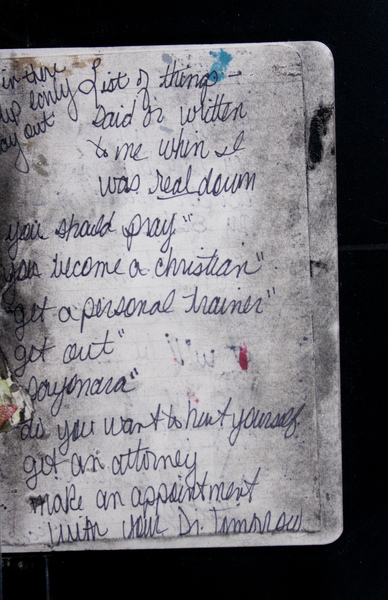 in there
only
ay out
List of things
said or written
to me when I
was real down
you should pray"
you become a christian"
get a personal trainer"
get out"
Sayonara"
do you want to hurt yourself
get an attorney
make an appointment
with your Dr. Tomorrow